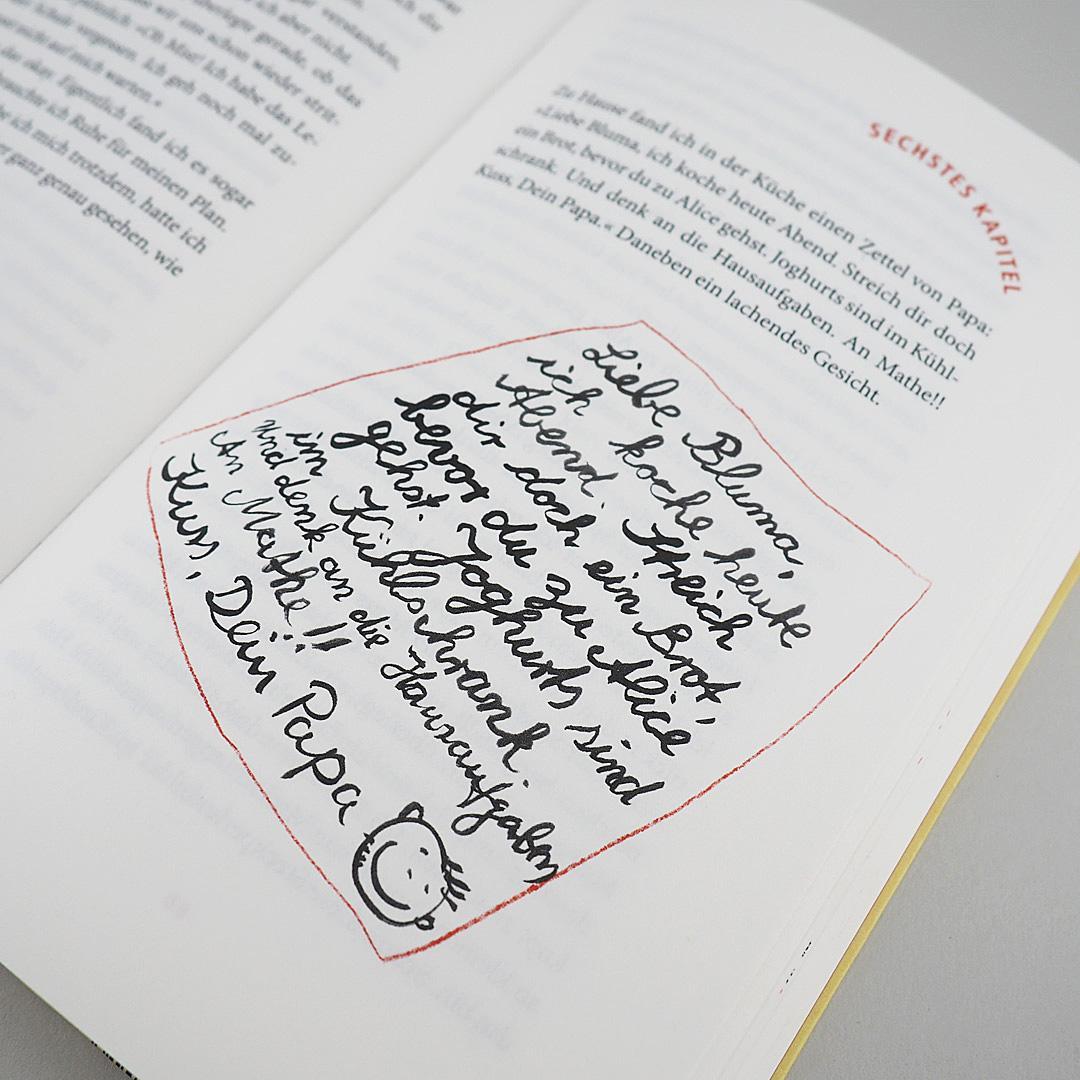 verstanden,
ich aber nicht.
gerade, ob das
wir uns schon wieder strit-
»Oh Mist! Ich habe das Le-
vergessen. Ich geh noch mal zu-
nicht auf mich warten.«
das okay. Eigentlich fand ich es sogar
brauchte ich Ruhe für meinen Plan.
ich mich trotzdem, hatte ich
ganz genau gesehen, wie
SECHSTES KAPITEL
Zu Hause fand ich in der Küche einen Zettel von Papa:
»Liebe Bluma, ich koche heute Abend. Streich dir doch
ein Brot, bevor du zu Alice gehst. Joghurts sind im Kühl-
schrank. Und denk an die Hausaufgaben. An Mathe!!
Kuss, Dein Papa.« Daneben ein lachendes Gesicht.
Liebe Bluma,
ich koche heute
Abend. Streich
dir doch ein Brot,
bevor du zu Alice
gehst. Joghurts sind
im Kühlschrank.
Und denk an die Hausaufgaben
An Mathe!!
Kuss, Dein Papa